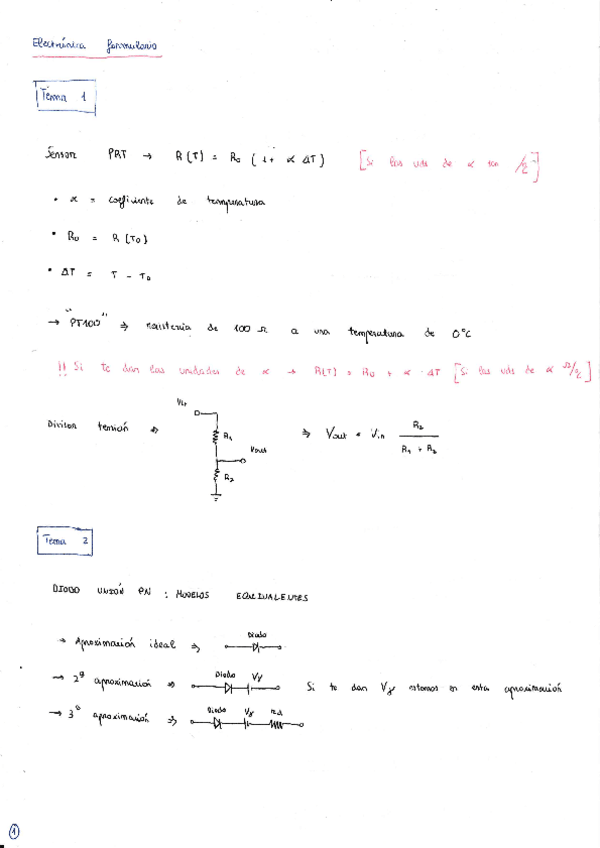 Electrónica formulario
Tema 1
Sensor PRT → R(T) = R₀ (1 + α ΔT) [Si las uds de α son /°C]
• α = coeficiente de temperatura
• R₀ = R(T₀)
• ΔT = T - T₀
→ "PT100" ⇒ resistencia de 100 Ω a una temperatura de 0°C
!! Si te dan las unidades de α → R(T) = R₀ + α · ΔT [Si las uds de α Ω/°C]
Divisor tensión ⇒ R₁ Vout R₂ ⇒ Vout = Vin R₂ / R₁ + R₂
Tema 2
DIODO UNIÓN PN : MODELOS EQUIVALENTES
→ Aproximación ideal ⇒ Diodo
→ 2ª aproximación ⇒ Diodo Vγ Si te dan Vγ estamos en esta aproximación
→ 3ª aproximación ⇒ Diodo Vγ
1